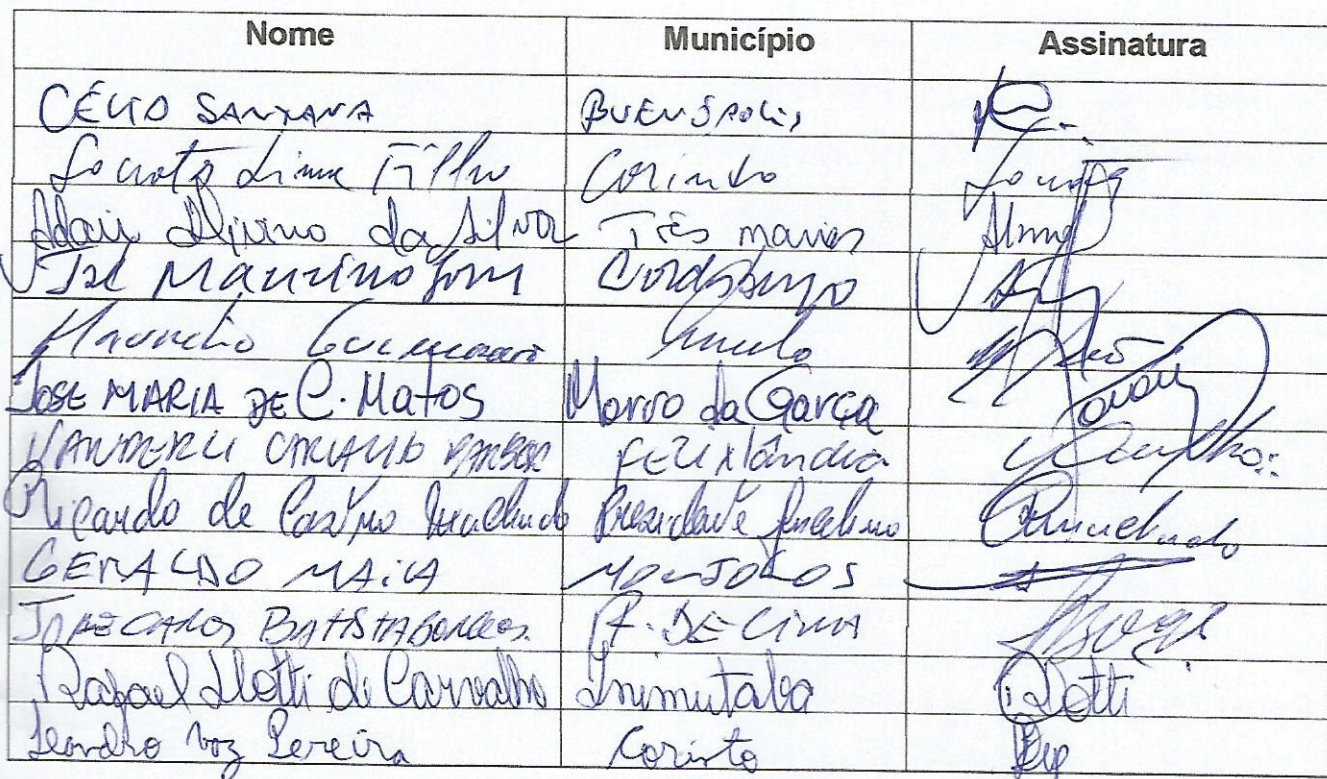 Nome Município Assinatura
CÉLIO SANTANA BUENÓPOLIS
Socrates Lima Filho Corinto Socrates
Adair Divino da Silva Três Marias
José Maurício Gomes Cordisburgo
Mauricio Guimarães
JOSE MARIA DE C. Matos Morro da Garça
VANDERLI CARVALHO BARBOSA FELIXlândia
Ricardo de Castro Machado Presidente Juscelino RMachado
GERALDO MAIA MONJOLOS
JOSE CARLOS BATISTA BORGES P. DE CIMA Borges
Rafael Ilotti de Carvalho Inimutaba Ilotti
Leandro Vaz Pereira Corinto